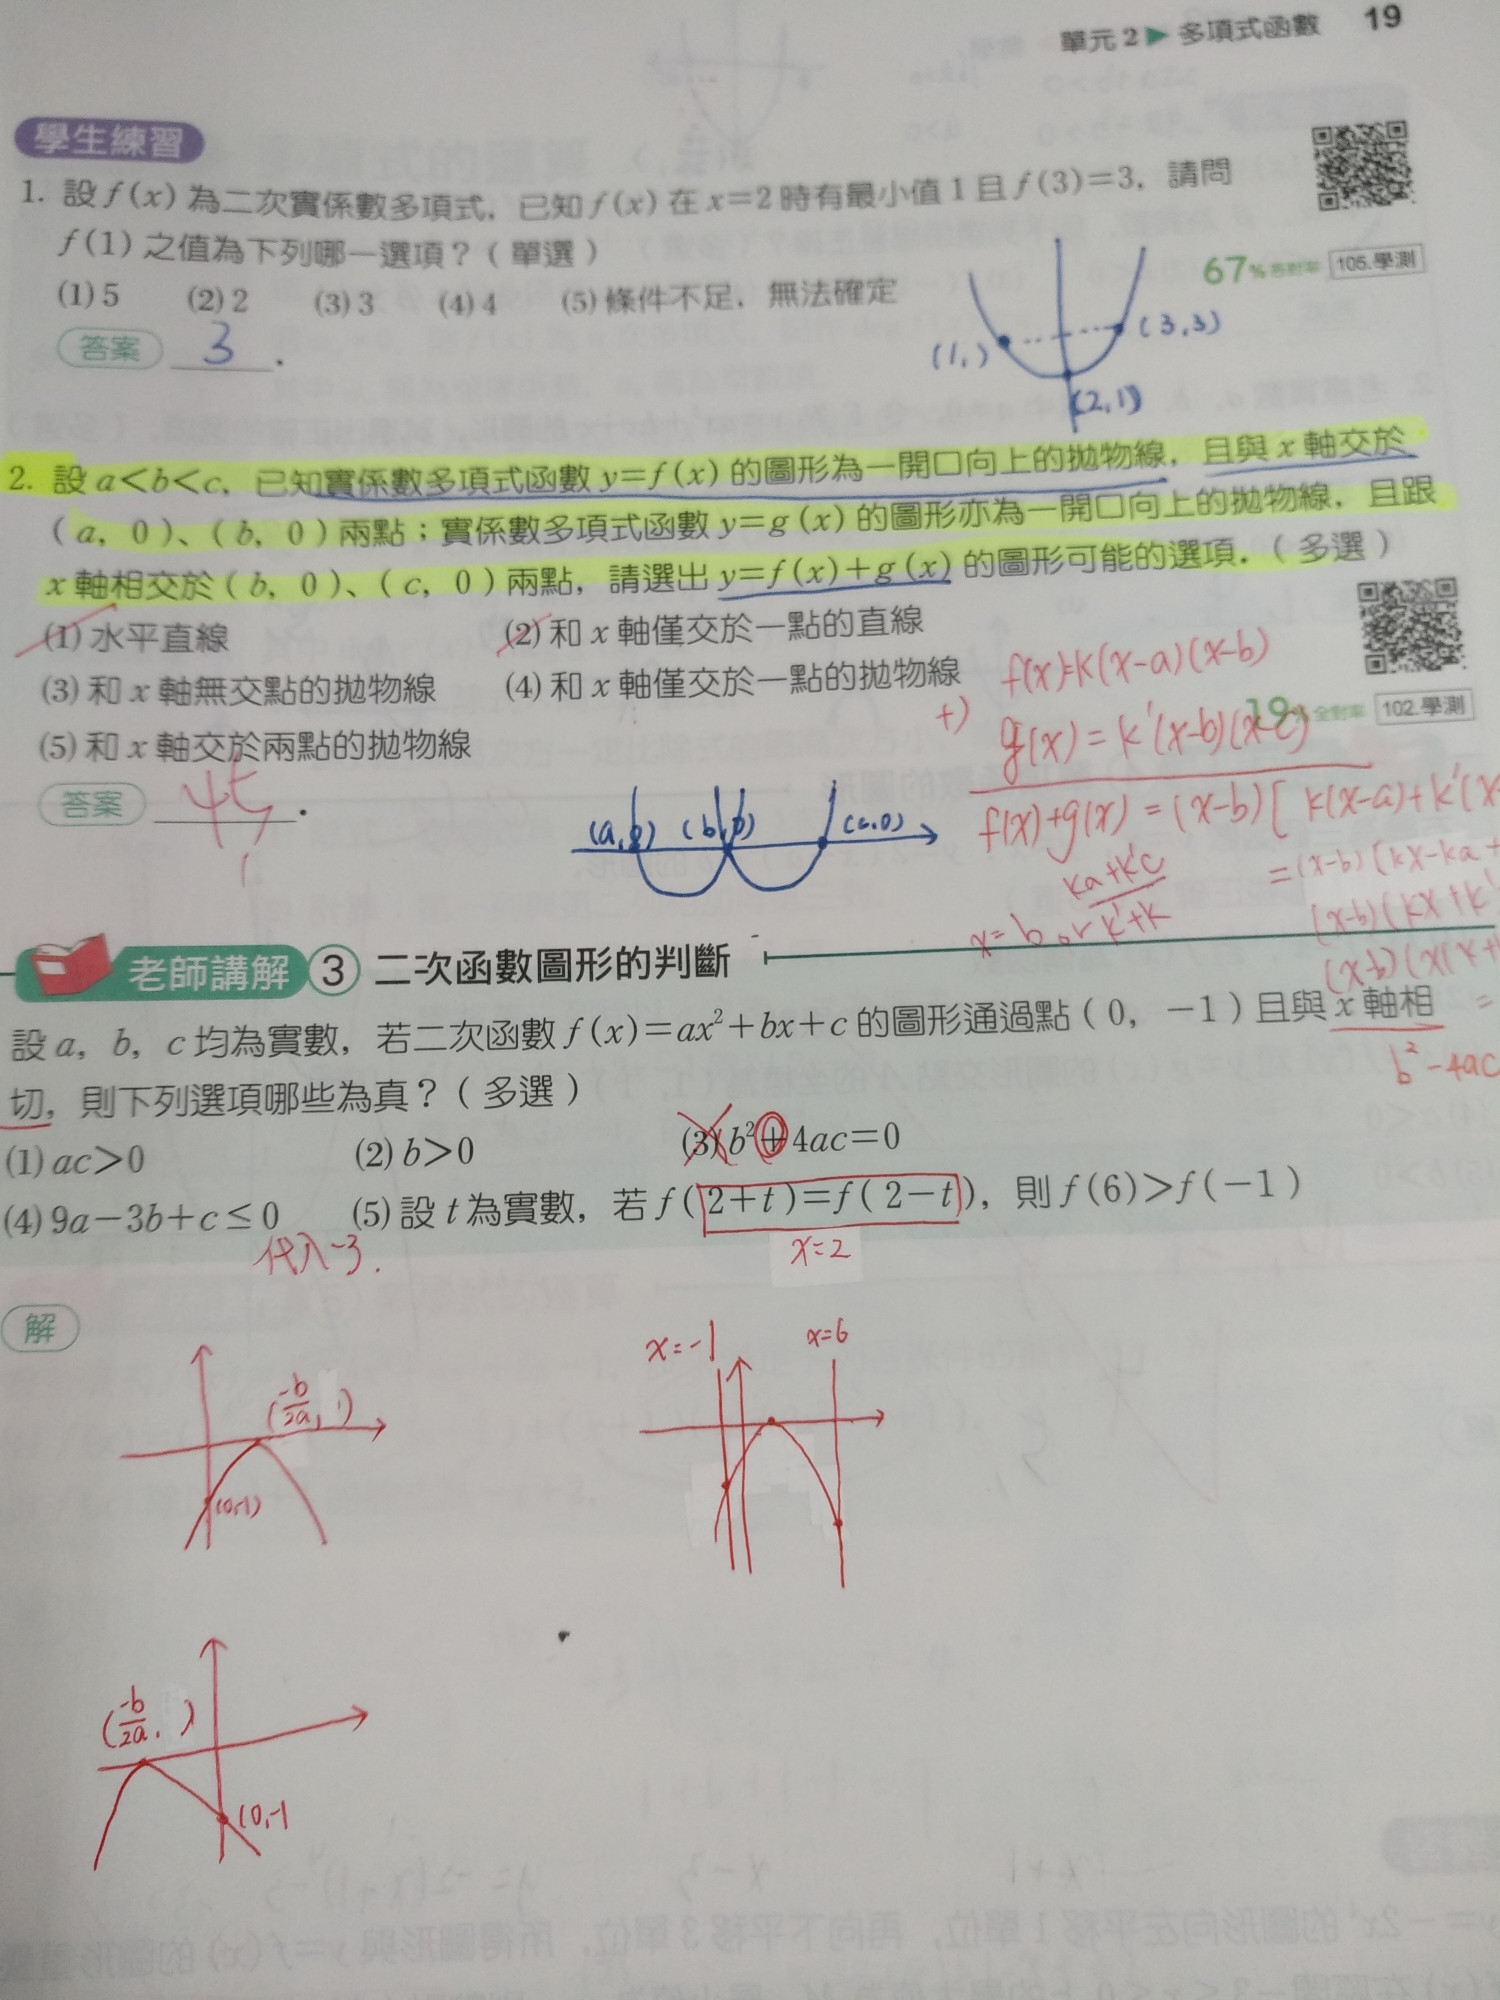 單元 2 ▶ 多項式函數 19
學生練習
1. 設 f(x) 為二次實係數多項式，已知 f(x) 在 x=2 時有最小值 1 且 f(3)=3，請問
f(1) 之值為下列哪一選項？（單選）
67% 答對率 105.學測
(1) 5 (2) 2 (3) 3 (4) 4 (5) 條件不足，無法確定
答案 3 .
(1, ) (3,3)
(2,1)
2. 設 a<b<c，已知實係數多項式函數 y=f(x) 的圖形為一開口向上的拋物線，且與 x 軸交於
(a, 0)、(b, 0) 兩點；實係數多項式函數 y=g(x) 的圖形亦為一開口向上的拋物線，且跟
x 軸相交於 (b, 0)、(c, 0) 兩點，請選出 y=f(x)+g(x) 的圖形可能的選項．（多選）
(1) 水平直線 (2) 和 x 軸僅交於一點的直線
(3) 和 x 軸無交點的拋物線 (4) 和 x 軸僅交於一點的拋物線
19% 全對率 102.學測
(5) 和 x 軸交於兩點的拋物線
答案 45 .
f(x)=k(x-a)(x-b)
+) g(x)=k'(x-b)(x-c)
f(x)+g(x)=(x-b)[k(x-a)+k'(x-
=(x-b)(kx-ka+
(x-b)(kx+k'
x=b or ka+k'c / k'+k
(a,0) (b,0) (c,0)
老師講解 3 二次函數圖形的判斷
設 a，b，c 均為實數，若二次函數 f(x)=ax²+bx+c 的圖形通過點 (0, -1) 且與 x 軸相
切，則下列選項哪些為真？（多選）
b²-4ac
(1) ac>0 (2) b>0 (3) b²+4ac=0
(4) 9a-3b+c≤0 (5) 設 t 為實數，若 f(2+t)=f(2-t)，則 f(6)>f(-1)
代入-3. x=2
解
(-b/2a, )
(0,-1)
x=-1 x=6
(-b/2a, )
(0,-1